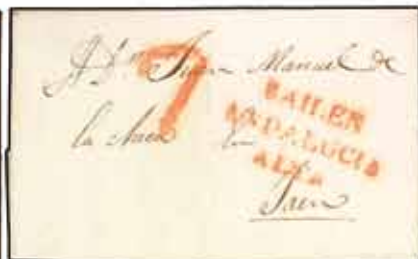 A Dn Juan Manuel de
la
Jaen
7
BAILEN
ANDALUCIA
ALTA